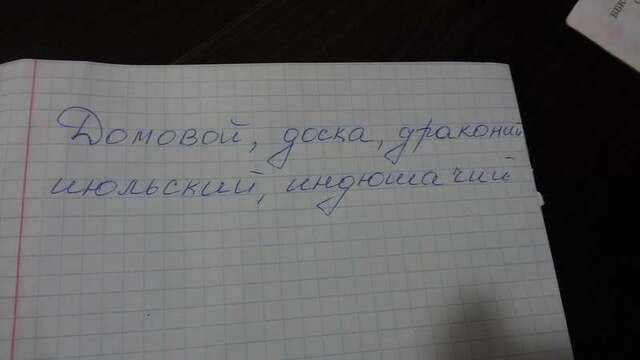 Домовой, доска, драконий
июльский, индюшачий